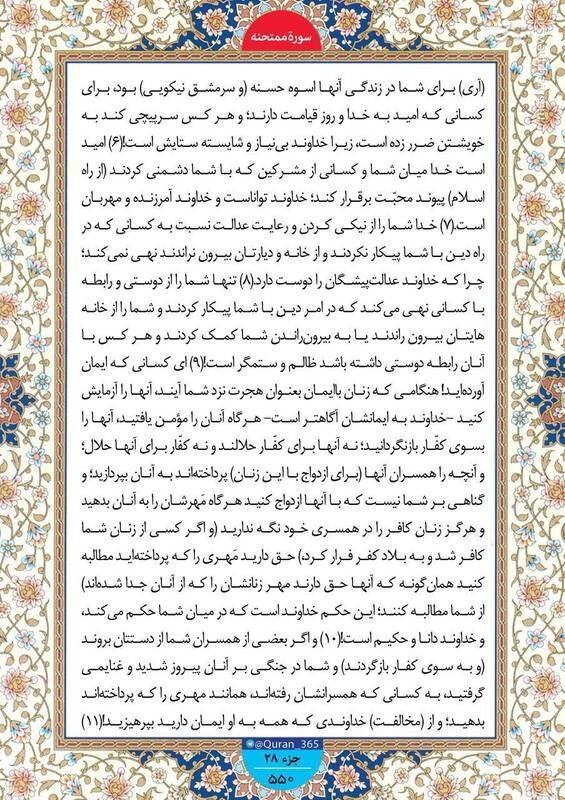 سورة ممتحنه
(آری) برای شما در زندگی آنها اسوه حسنه (و سرمشق نیکویی) بود، برای
کسانی که امید به خدا و روز قیامت دارند؛ و هر کس سرپیچی کند به
خویشتن ضرر زده است، زیرا خداوند بی‌نیاز و شایسته ستایش است!(۶) امید
است خدا میان شما و کسانی از مشرکین که با شما دشمنی کردند (از راه
اسلام) پیوند محبّت برقرار کند؛ خداوند تواناست و خداوند آمرزنده و مهربان
است.(۷) خدا شما را از نیکی کردن و رعایت عدالت نسبت به کسانی که در
راه دین با شما پیکار نکردند و از خانه و دیارتان بیرون نراندند نهی نمی‌کند؛
چرا که خداوند عدالت‌پیشگان را دوست دارد.(۸) تنها شما را از دوستی و رابطه
با کسانی نهی می‌کند که در امر دین با شما پیکار کردند و شما را از خانه
هایتان بیرون راندند یا به بیرون‌راندن شما کمک کردند و هر کس با
آنان رابطه دوستی داشته باشد ظالم و ستمگر است!(۹) ای کسانی که ایمان
آورده‌اید! هنگامی که زنان باایمان بعنوان هجرت نزد شما آیند، آنها را آزمایش
کنید -خداوند به ایمانشان آگاهتر است- هرگاه آنان را مؤمن یافتید، آنها را
بسوی کفّار بازنگردانید؛ نه آنها برای کفّار حلالند و نه کفّار برای آنها حلال؛
و آنچه را همسران آنها (برای ازدواج با این زنان) پرداخته‌اند به آنان بپردازید؛ و
گناهی بر شما نیست که با آنها ازدواج کنید هرگاه مَهرشان را به آنان بدهید
و هرگز زنان کافر را در همسری خود نگه ندارید (و اگر کسی از زنان شما
کافر شد و به بلاد کفر فرار کرد،) حق دارید مَهری را که پرداخته‌اید مطالبه
کنید همان‌گونه که آنها حق دارند مهر زنانشان را که از آنان جدا شده‌اند)
از شما مطالبه کنند؛ این حکم خداوند است که در میان شما حکم می‌کند،
و خداوند دانا و حکیم است!(۱۰) و اگر بعضی از همسران شما از دستتان بروند
(و به سوی کفار بازگردند) و شما در جنگی بر آنان پیروز شدید و غنایمی
گرفتید، به کسانی که همسرانشان رفته‌اند، همانند مهری را که پرداخته‌اند
بدهید؛ و از (مخالفت) خداوندی که همه به او ایمان دارید بپرهیزید!(۱۱)
@Quran_365
جزء ۲۸
۵۵۰